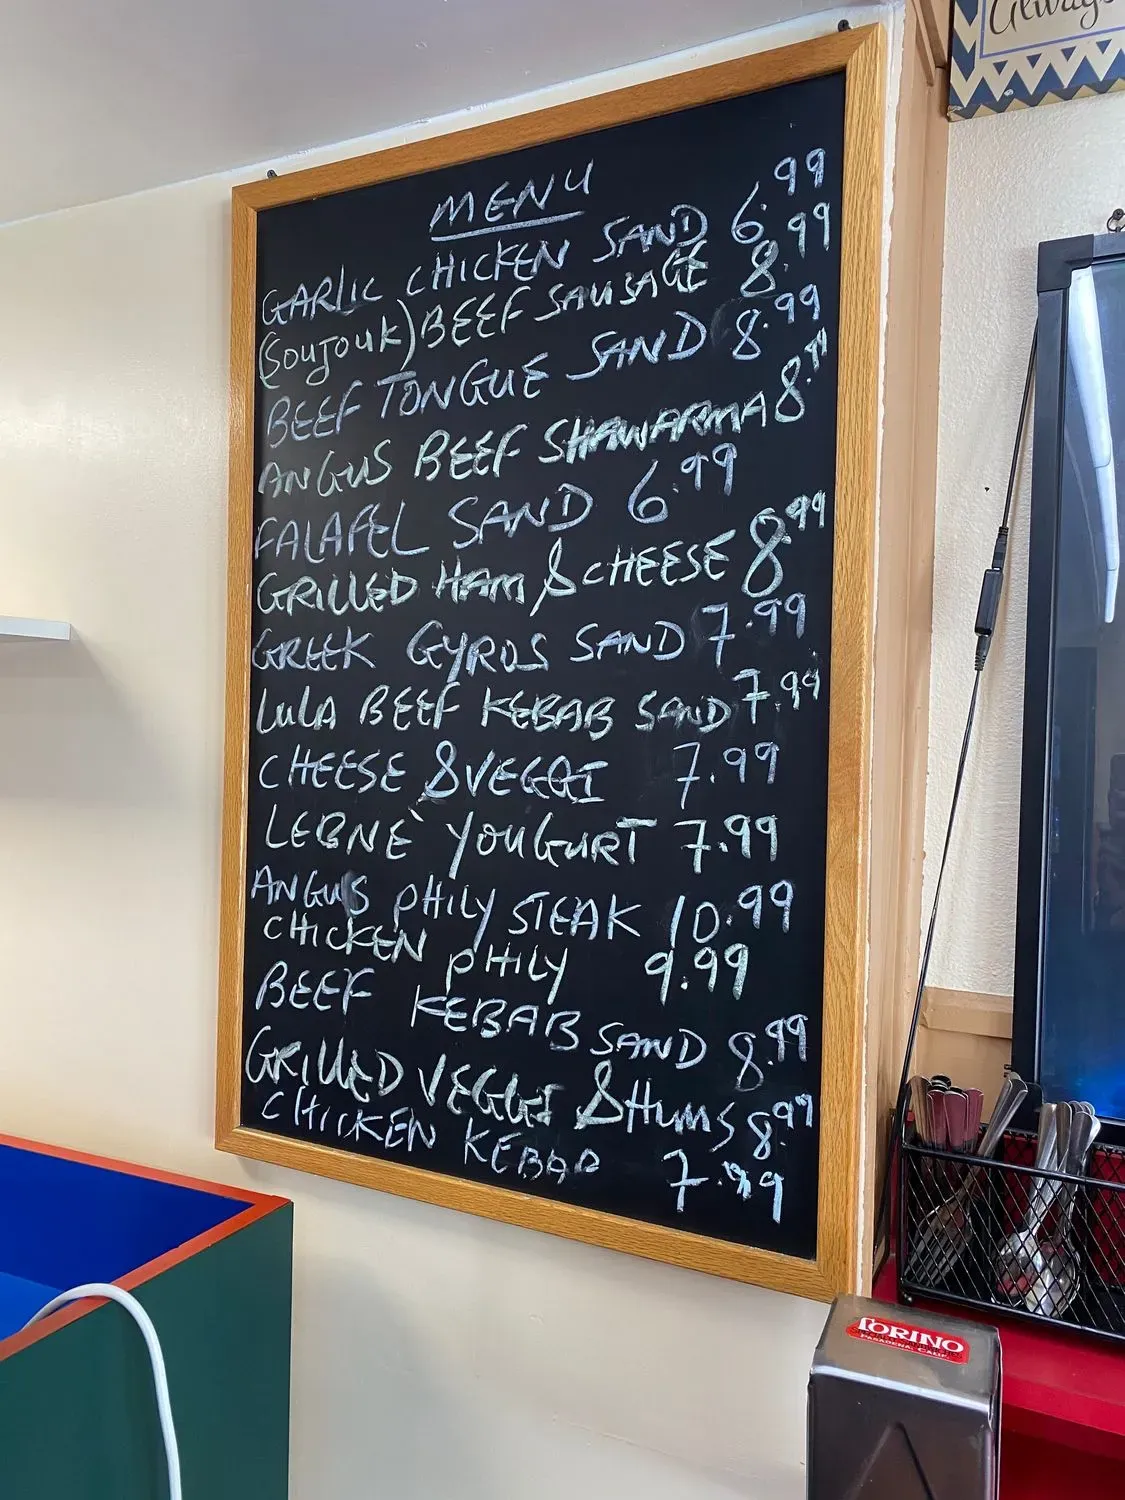 Always
MENU
GARLIC CHICKEN SAND 6.99
(SOUJOUK) BEEF SAUSAGE 8.99
BEEF TONGUE SAND 8.99
ANGUS BEEF SHAWARMA 8.99
FALAFEL SAND 6.99
GRILLED HAM & CHEESE 8.99
GREEK GYROS SAND 7.99
LULA BEEF KEBAB SAND 7.99
CHEESE & VEGGI 7.99
LEBNE` YOUGURT 7.99
ANGUS PHILY STEAK 10.99
CHICKEN PHILY 9.99
BEEF KEBAB SAND 8.99
GRILLED VEGGI & HUMS 8.99
CHICKEN KEBAB 7.99
TORINO
PASADENA, CALIF.